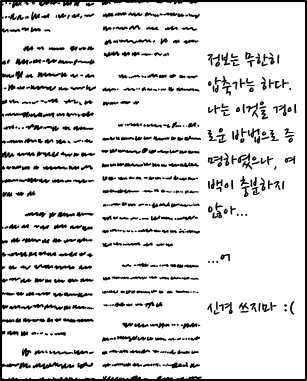 정보는 무한히
압축가능 하다.
나는 이것을 경이
로운 방법으로 증
명하였으나, 여
백이 충분하지
않아...
...어
신경 쓰지마 :(